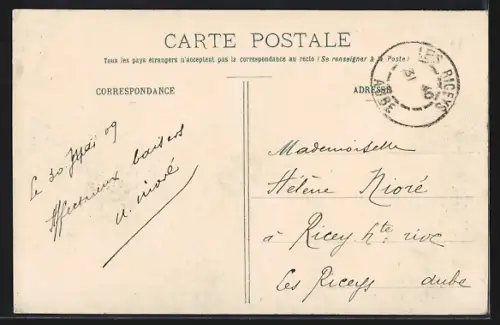 CARTE POSTALE
Tous les pays étrangers n'acceptent pas la correspondance au recto (Se renseigner à la Poste)
CORRESPONDANCE
ADRESSE
LES RICEYS
31
AUBE
Le 30 Mai 09
Affectueux baisers
Mademoiselle
Hélène Nioré
à Ricey hte rive
Les Riceys aube